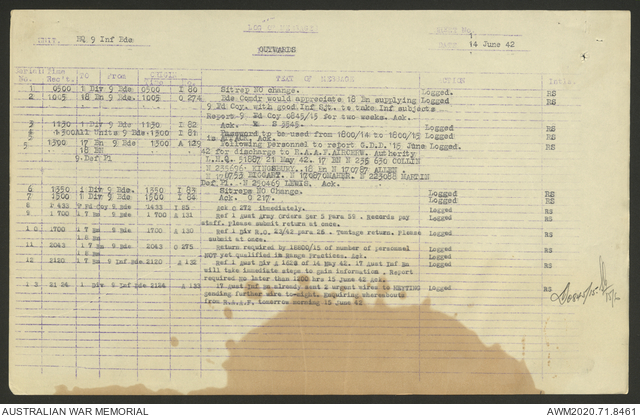 UNIT. HQ 9 Inf Bde
SHEET No. 1
DATE 14 June 42
OUTWARDS
Serial Time
No. Rec'td. TO From TEXT OF MESSAGE ACTION Intls.
1 0500 1 Div 9 Bde 0500 I 80 Sitrep NO change. Logged. RS
2 1005 18 Bn 9 Bde. 1005 O 274 Bde Comdr would appreciate 18 Bn supplying Logged RS
9 Fd Coy. with good Inf Sjt. to take Inf subjects
Report 9 Fd Coy 0845/15 for two weeks. Ack.
3 1130 1 Div 9 Bde. 1130 I 82 Ack. S 3345. Logged RS
4 1300 All Units 9 Bde. 1300 I 81 Password to be used from 1800/14 to 1800/15 Logged RS
is Ack.
5 1300 17 Bn 9 Bde 1300 A 129 Following personnel to report G.D.D. 15 June Logged. RS
18 Bn
9. Def Pl
42 for discharge to R.A.A.F. AIRCREW. Authority
L.H.Q. 51687 21 May 42. 17 BN N 235 630 COLLIN
18 Bn N 170787 ALLEN
N 223088 MARTIN
Def Pl. - N 250469 LEWIS. Ack.
6 1350 1 Div 9 Bde 1350 I 83 Sitreps NO Change. Logged RS
7 1500 1 Div 9 Bde 1500 I 84 Ack. O 217. Logged RS
1433 9 Fd Coy 9 Bde 1433 I 85 Ack O 272 immediately. Logged
9 1700 1 7 Bn 9 Bde 1 700 A 131 Ref 1 Aust army orders ser 5 para 58. Records pay Logged RS
staff. Please submit return at once.
1 0 1700 1 7 Bn 9 Bde 1700 A 130 Ref 1 Div R.O. 23/42 para 25. Tonnage return. Please Logged RS
1 8 Bn submit at once.
11 2043 1 7 Bn 9 Bde 2043 O 275 Return required by 1800/15 of number of personnel Logged RS
1 8 Bn NOT yet qualified in Range Practices. Ack.
12 2120 1 7 Bn 9 Inf Bde 2120 A 132 Ref 1 Aust Div A 1628 of 14 May 42. 17 Aust Inf Bn Logged RS
will take immediate steps to gain information. Report
required NO later than 1200 hrs 15 June 42 Ack.
1 3 21 24 1 Div. 9 Inf Bde 2124 A 133 17 Aust Inf Bn already sent 2 urgent wires to Logged RS
pending further wire to-night. Enquiring whereabouts
from R.A.A.F. tomorrow morning 15 June 42
AUSTRALIAN WAR MEMORIAL
AWM2020.71.8461